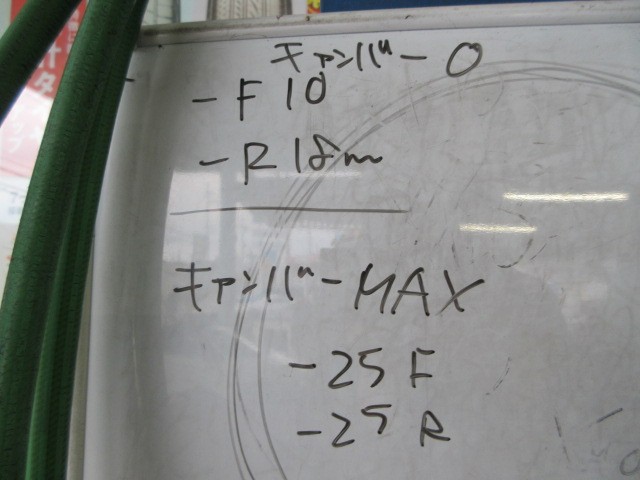 キャンバー 0
- F 10
- R 18m
キャンバー MAX
- 25 F
- 25 R